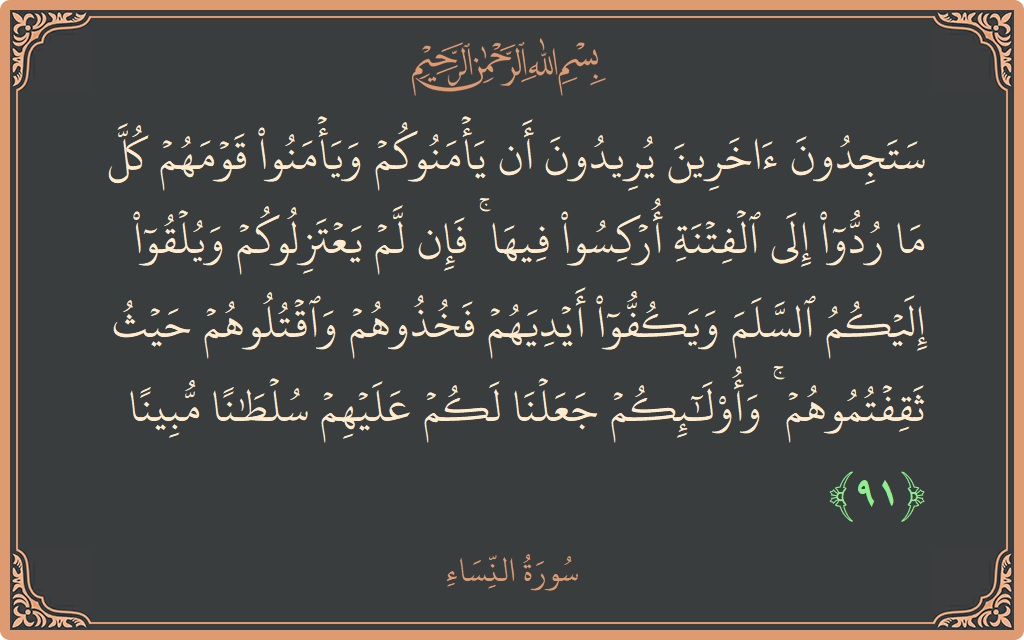 بِسْمِ اللَّهِ الرَّحْمَٰنِ الرَّحِيمِ
سَتَجِدُونَ ءَاخَرِينَ يُرِيدُونَ أَن يَأْمَنُوكُمْ وَيَأْمَنُوا۟ قَوْمَهُمْ كُلَّ
مَا رُدُّوٓا۟ إِلَى ٱلْفِتْنَةِ أُرْكِسُوا۟ فِيهَا ۚ فَإِن لَّمْ يَعْتَزِلُوكُمْ وَيُلْقُوٓا۟
إِلَيْكُمُ ٱلسَّلَمَ وَيَكُفُّوٓا۟ أَيْدِيَهُمْ فَخُذُوهُمْ وَٱقْتُلُوهُمْ حَيْثُ
ثَقِفْتُمُوهُمْ ۚ وَأُو۟لَٰٓئِكُمْ جَعَلْنَا لَكُمْ عَلَيْهِمْ سُلْطَٰنًا مُّبِينًا
﴿٩١﴾
سُورَةُ النِّسَاءِ